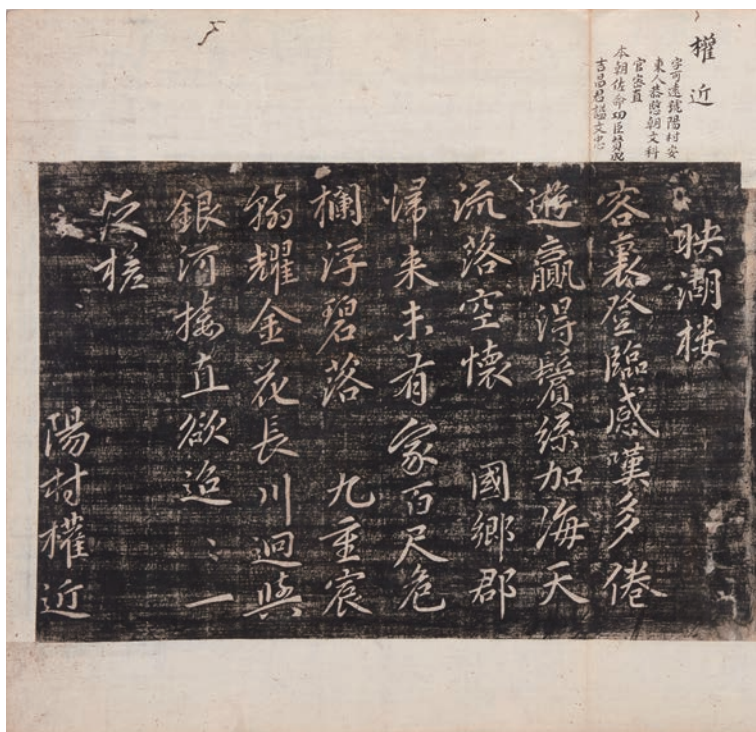 權近
字可遠號陽村安
東人恭愍朝文科
官密直
本朝佐命功臣贊成
吉昌君諡文忠
映湖楼
客裏登臨感嘆多倦
遊贏得鬢絲加海天
流落空懷 國鄉郡
歸来未有家百尺危
欄浮碧落 九重宸
翰耀金花長川迥與
銀河接直欲迢〻一
泛槎
陽村權近